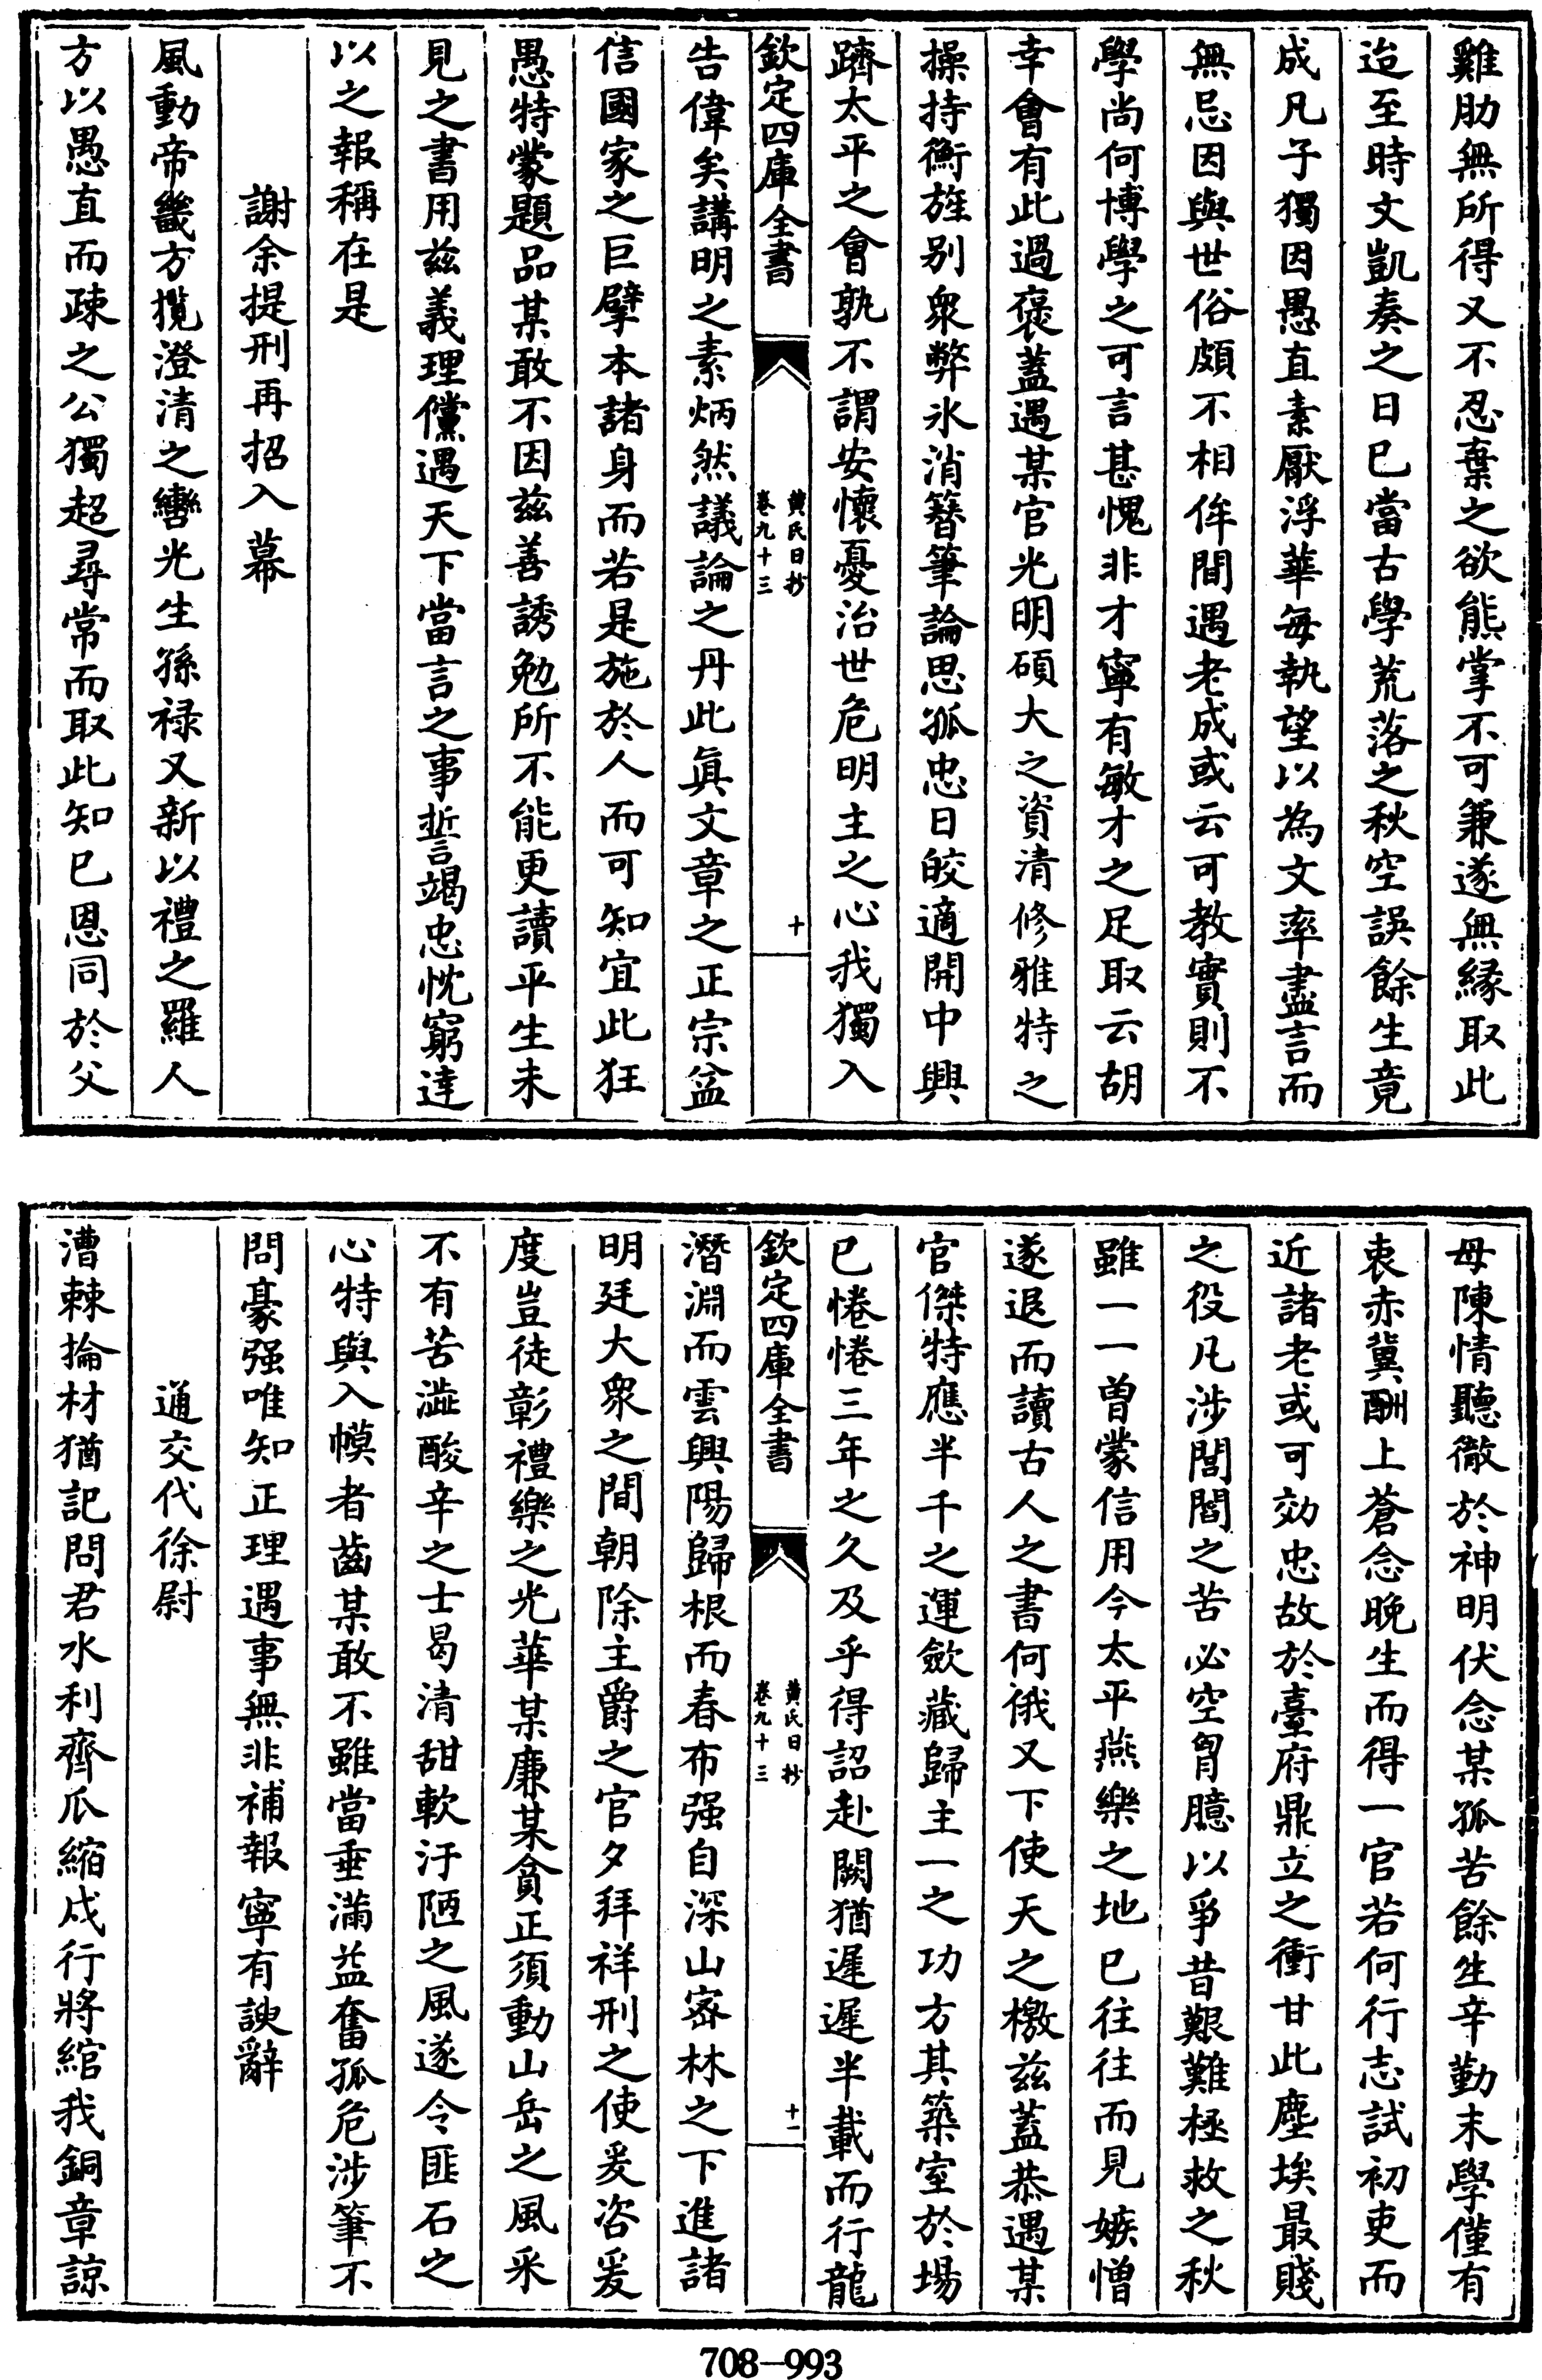 雞肋無所得又不忍棄之欲熊掌不可兼遂無緣取此
迨至時文凱奏之日已當古學荒落之秋空誤餘生竟
成凡子獨因愚直素厭浮華每執望以為文率盡言而
無忌因與世俗頗不相侔間遇老成或云可教實則不
學尚何博學之可言甚愧非才寧有敏才之足取云胡
幸會有此過褒蓋遇某官光明碩大之資清修雅特之
操持衡旌别衆弊氷消簪筆論思孤忠日皎適開中興
躋太平之會孰不謂安懷憂治世危明主之心我獨入
欽定四庫全書
黄氏日抄
卷九十三
十
告偉矣講明之素炳然議論之丹此眞文章之正宗益
信國家之巨擘本諸身而若是施於人而可知宜此狂
愚特蒙題品某敢不因兹善誘勉所不能更讀平生未
見之書用兹義理儻遇天下當言之事誓竭忠忱窮達
以之報稱在是
謝余提刑再招入幕
風動帝畿方攬澄清之轡光生孫禄又新以禮之羅人
方以愚直而疎之公獨超尋常而取此知已恩同於父
母陳情聽徹於神明伏念某孤苦餘生辛勤末學僅有
衷赤冀酬上蒼念晚生而得一官若何行志試初吏而
近諸老或可効忠故於臺府鼎立之衝甘此塵埃最賤
之役凡涉閭閻之苦必空胷臆以爭昔艱難拯救之秋
雖一一曾蒙信用今太平燕樂之地已往往而見嫉憎
遂退而讀古人之書何俄又下使天之檄兹蓋恭遇某
官傑特應半千之運歛藏歸主一之功方其築室於場
已惓惓三年之久及乎得詔赴闕猶遲遲半載而行龍
欽定四庫全書
黄氏日抄
卷九十三
十一
潛淵而雲興陽歸根而春布强自深山宻林之下進諸
明廷大衆之間朝除主爵之官夕拜祥刑之使爰咨爰
度豈徒彰禮樂之光華某廉某貪正須動山岳之風采
不有苦澁酸辛之士曷清甜軟汙陋之風遂令匪石之
心特與入幙者齒某敢不雖當垂滿益奮孤危涉筆不
問豪强唯知正理遇事無非補報寧有諛辭
通交代徐尉
漕棘掄材猶記問君水利齊瓜縮戍行將綰我銅章諒
708-993